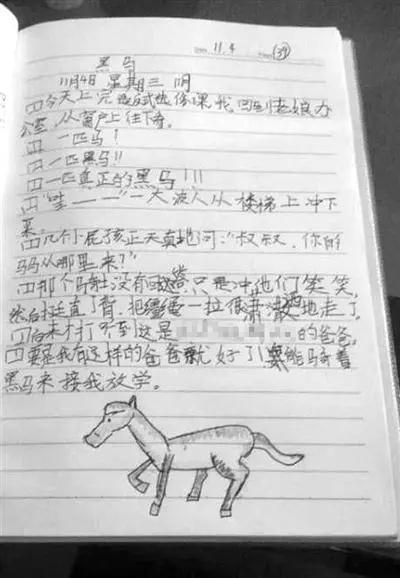 11.4 (39)
黑马
11月4日 星期三 阴
今天上完 试选修课,我回到老娘办
公室,从窗户上往下看。
一匹马!
一匹黑马!!
一匹真正的黑马!!!
"哇——"一大波人从楼梯上冲下
来。
几个小屁孩正天真地问:"叔叔,你的
马从哪里来?"
那个骑士没有回答,只是冲他们笑笑,
然后挺直了背,把缰绳一拉很潇洒地走了。
后来才打听到这是 的爸爸。
要是我有这样的爸爸就好了!能骑着
黑马来接我放学。